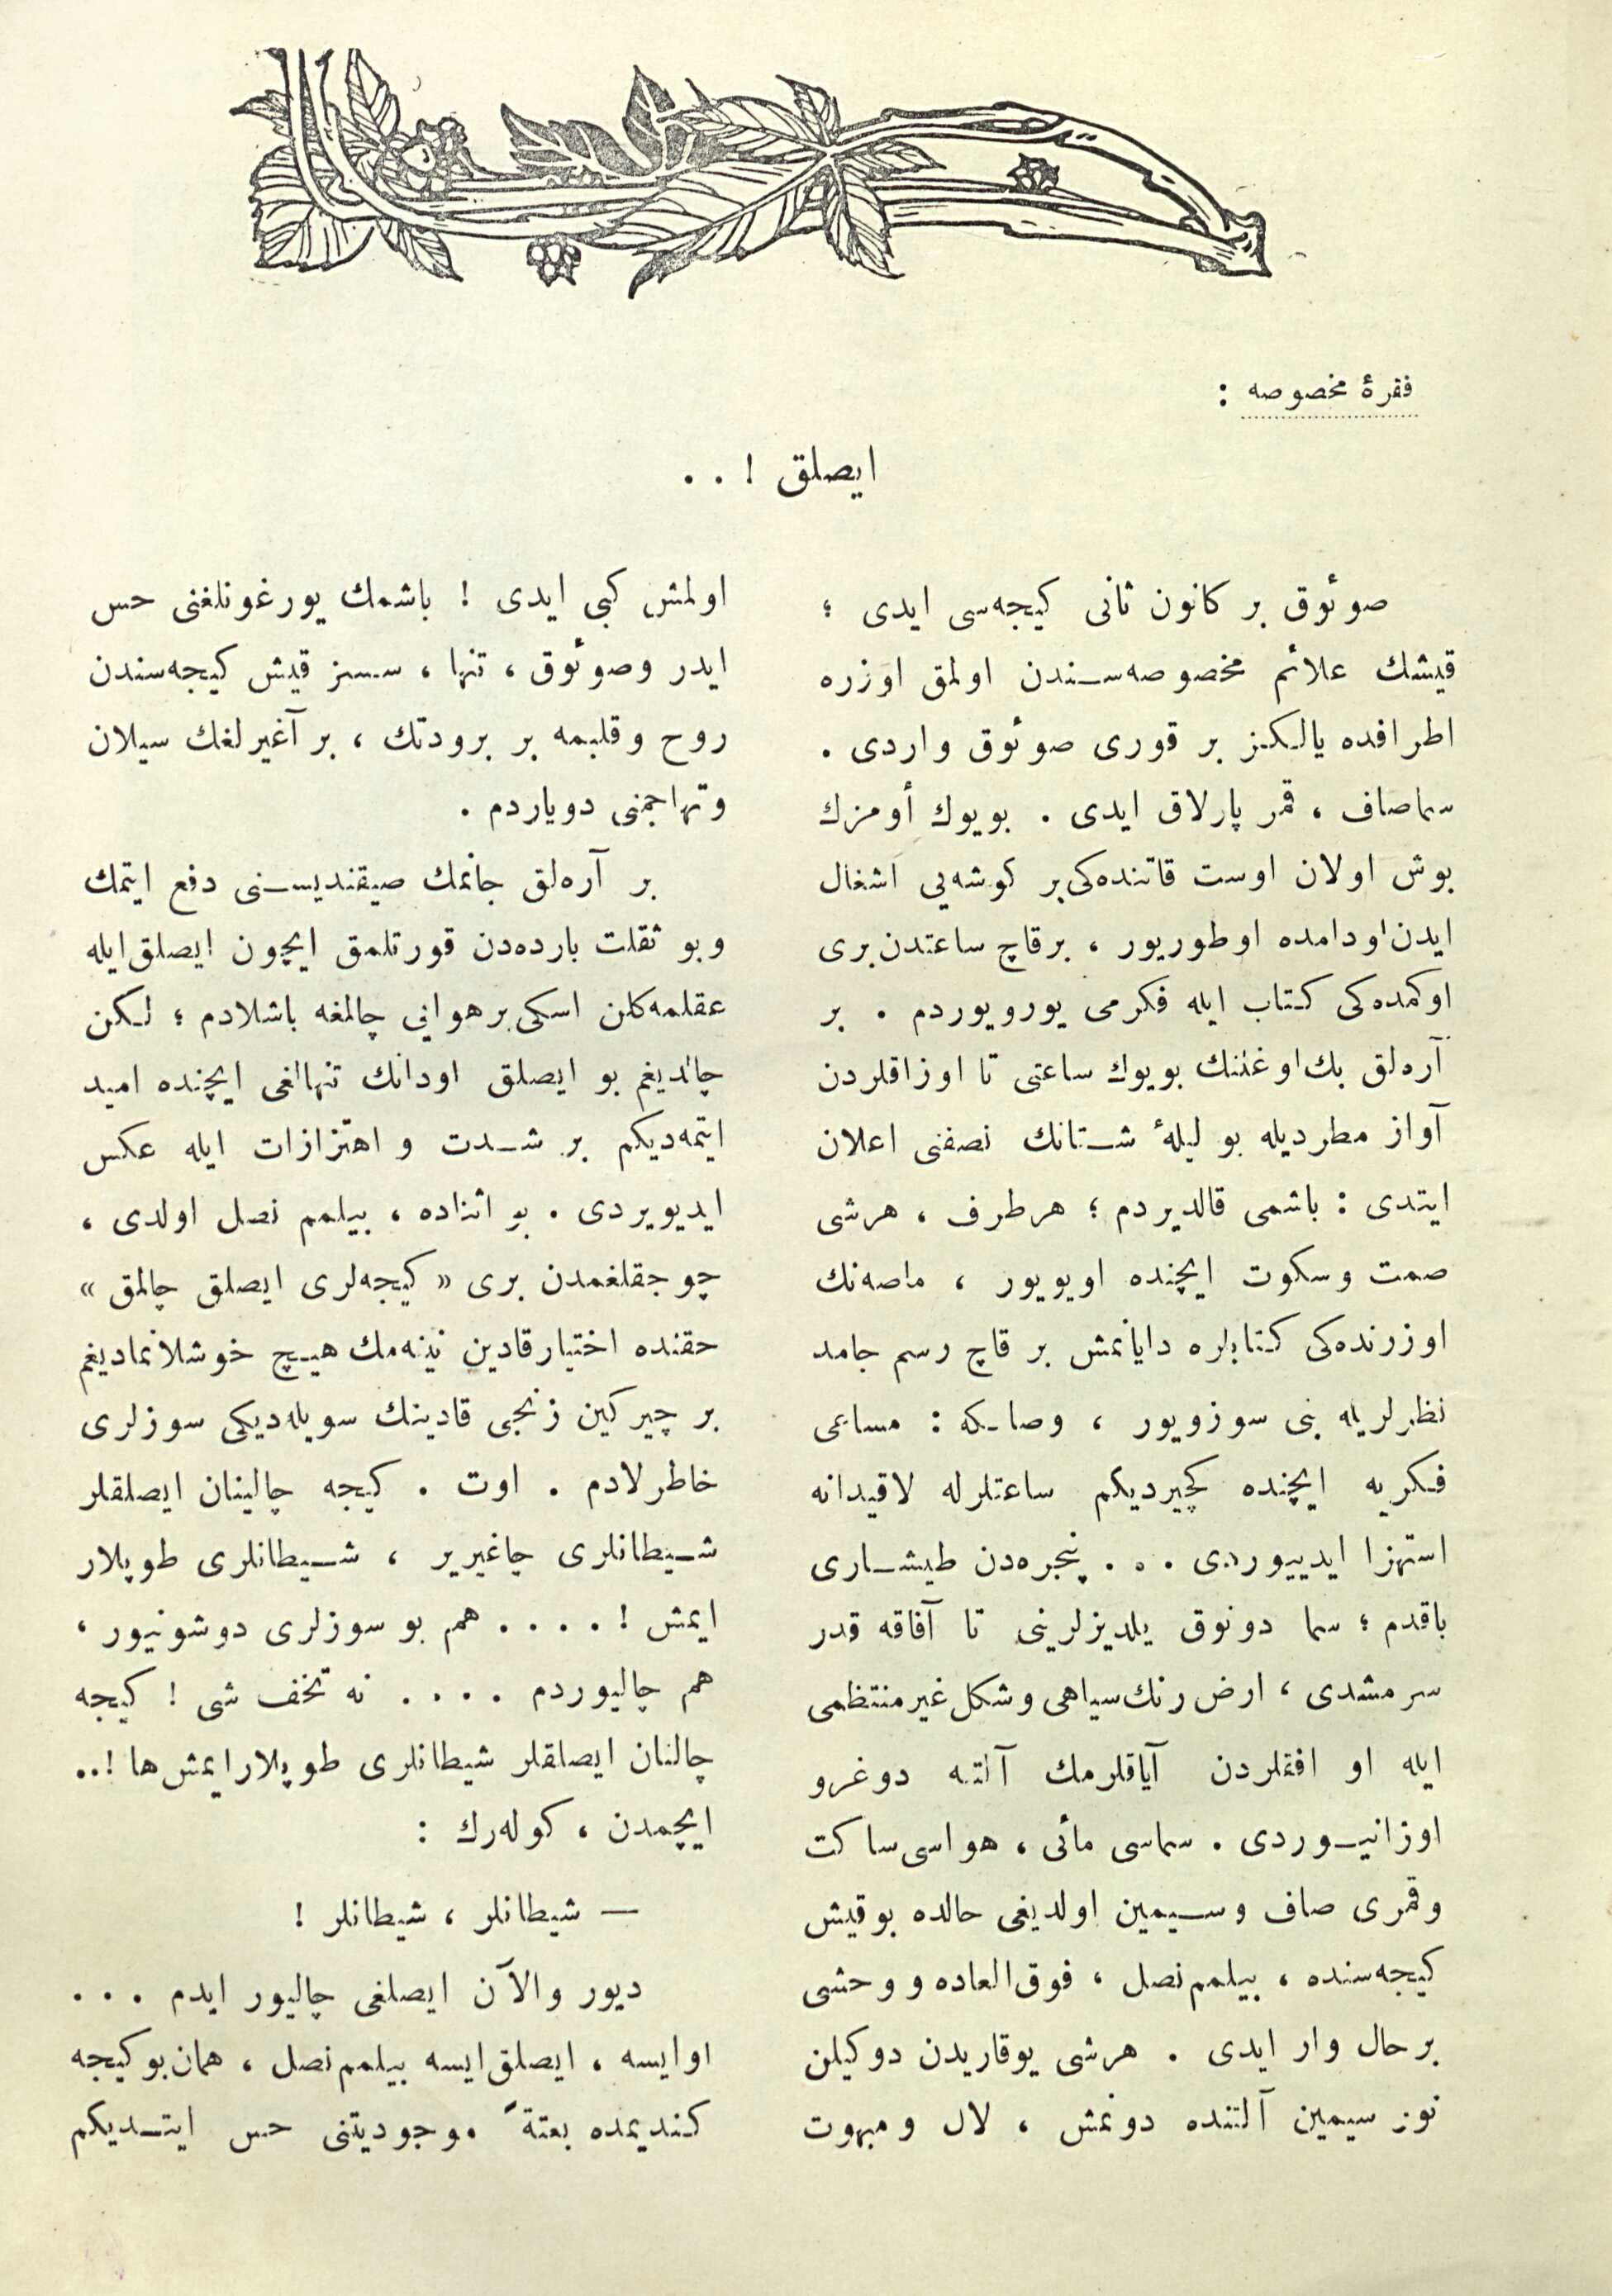 فقرهٔ مخصوصه :
ایصلق ! . .
صوئوق بر كانون ثانی كیجه‌سی ایدی ؛
قیشك علائم مخصوصه‌سندن اولمق اوزره
اطرافده یالكز بر قوری صوئوق واردی .
سما صاف ، قمر پارلاق ایدی . بویوك أومزك
بوش اولان اوست قاتنده‌كی بر كوشه‌یی اشغال
ایدن اودامده اوطوریور ، برقاچ ساعتدن بری
اوكمده‌كی كتاب ایله فكرمی یورویوردم . بر
آره‌لق بك‌اوغلنك بویوك ساعتی تا اوزاقلردن
آواز مطردیله بو لیلهٔ شتانك نصفنی اعلان
ایتدی : باشمی قالدیردم ؛ هرطرف ، هرشی
صمت وسكوت ایچنده اویویور ، ماصه‌نك
اوزرنده‌كی كتابلره دایانمش بر قاچ رسم جامد
نظرلریله بنی سوزویور ، وصانكه : مساعی
فكریه ایچنده كچیردیكم ساعتلرله لاقیدانه
استهزا ایدییوردی . . . پنجره‌دن طیشاری
باقدم ؛ سما دونوق یلدیزلرینی تا آفاقه قدر
سرمشدی ، ارض رنك سیاهی وشكل غیرمنتظمی
ایله او افقلردن آیاقلرمك آلتنه دوغرو
اوزانیوردی . سماسی مائی ، هواسی ساكت
وقمری صاف وسیمین اولدیغی حالده بوقیش
كیجه‌سنده ، بیلمم نصل ، فوق‌العاده و وحشی
برحال وار ایدی . هرشی یوقاریدن دوكیلن
نور سیمین آلتنده دوغمش ، لال ومبهوت
اولمش كبی ایدی ! باشمك یورغونلغنی حس
ایدر وصوئوق ، تنها ، سسز قیش كیجه‌سندن
روح وقلبمه بر برودتك ، بر آغیرلغك سیلان
وتهاجمنی دویاردم .
بر آره‌لق جانمك صیقندیسنی دفع ایتمك
وبو ثقلت بارده‌دن قورتلمق ایچون ایصلق ایله
عقلمه كلن اسكی بر هوایی چالمغه باشلادم ؛ لكن
چالدیغم بو ایصلق اودانك تنهالغی ایچنده امید
ایتمه‌دیكم بر شدت و اهتزازات ایله عكس
ایدیویردی . بو اثناده ، بیلمم نصل اولدی ،
چوجقلغمدن بری « كیجه‌لری ایصلق چالمق »
حقنده اختیار قادین نینه‌مك هیچ خوشلانمادیغم
بر چیركین زنجی قادینك سویله‌دیكی سوزلری
خاطرلادم . اوت . كیجه چالینان ایصلقلر
شیطانلری چاغیریر ، شیطانلری طوپلار
ایمش ! . . . . هم بو سوزلری دوشونیور ،
هم چالیوردم . . . . نه تحف شی ! كیجه
چالنان ایصلقلر شیطانلری طوپلار ایمش ها !..
ایچمدن ، كوله‌رك :
— شیطانلر ، شیطانلر !
دیور والآن ایصلغی چالیور ایدم . . .
اوایسه ، ایصلق ایسه بیلمم نصل ، همان بوكیجه
كندیمده بغتةً موجودیتنی حس ایتدیكم